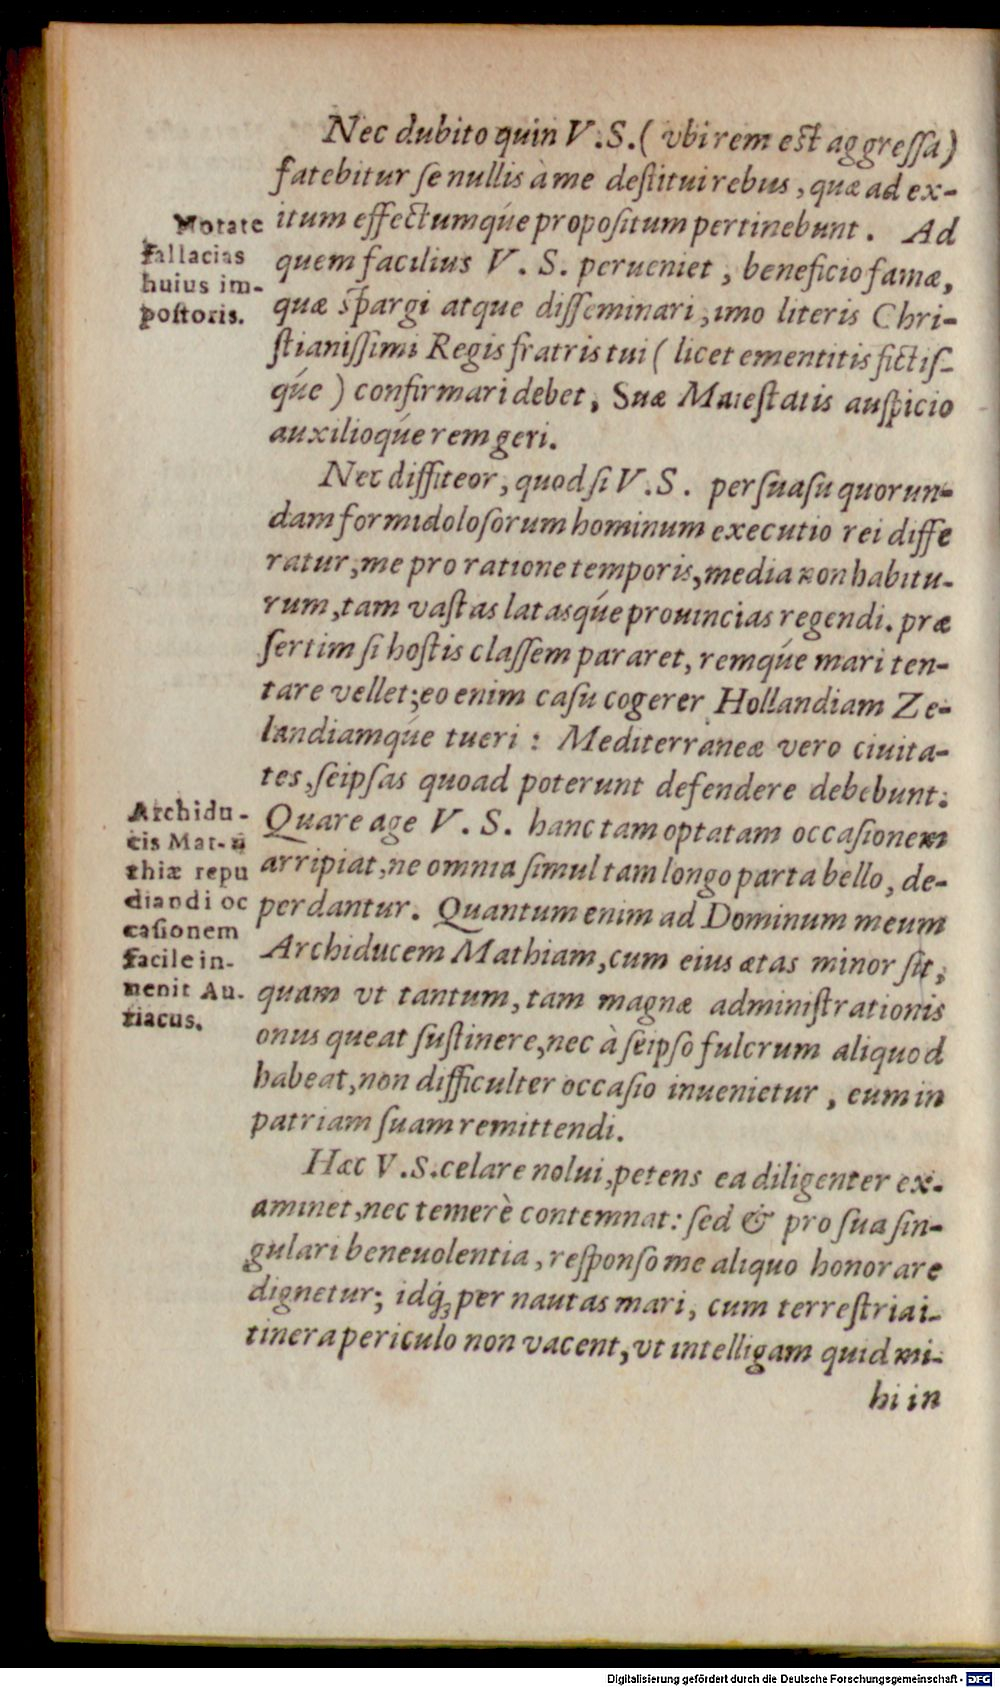 Nec dubito quin V.S. ( vbi rem est aggressa)
fatebitur se nullis à me destitui rebus, quæ ad ex-
itum effectumqúe propositum pertinebunt. Ad
quem facilius V. S. perueniet, beneficio famæ,
quæ spargi atque disseminari, imo literis Chri-
stianissimi Regis fratris tui ( licet ementitis fictis-
qúe ) confirmari debet, Suæ Maiestatis auspicio
auxilioqúe rem geri.
Notate
fallacias
huius im-
postoris.
Nec diffiteor, quod si V.S. persuasu quorun-
dam formidolosorum hominum executio rei diffe
ratur, me pro ratione temporis, media non habitu-
rum, tam vastas latasqúe prouincias regendi. præ
sertim si hostis classem pararet, remqúe mari ten-
tare vellet; eo enim casu cogerer Hollandiam Ze-
landiamqúe tueri : Mediterraneæ vero ciuita-
tes, seipsas quoad poterunt defendere debebunt.
Quare age V. S. hanc tam optatam occasionem
arripiat, ne omnia simul tam longo parta bello, de-
perdantur. Quantum enim ad Dominum meum
Archiducem Mathiam, cum eius ætas minor sit,
quam vt tantum, tam magnæ administrationis
onus queat sustinere, nec à seipso fulcrum aliquod
habeat, non difficulter occasio inuenietur, eum in
patriam suam remittendi.
Archidu-
cis Mat-
thiæ repu
diandi oc
casionem
facile in-
uenit Au-
riacus.
Hæc V.S. celare nolui, petens ea diligenter ex-
aminet, nec temerè contemnat: sed & pro sua sin-
gulari beneuolentia, responso me aliquo honorare
dignetur; idq́ꝫ per nautas mari, cum terrestria i-
tinera periculo non vacent, vt intelligam quid mi-
hi in
Digitalisierung gefördert durch die Deutsche Forschungsgemeinschaft - DFG